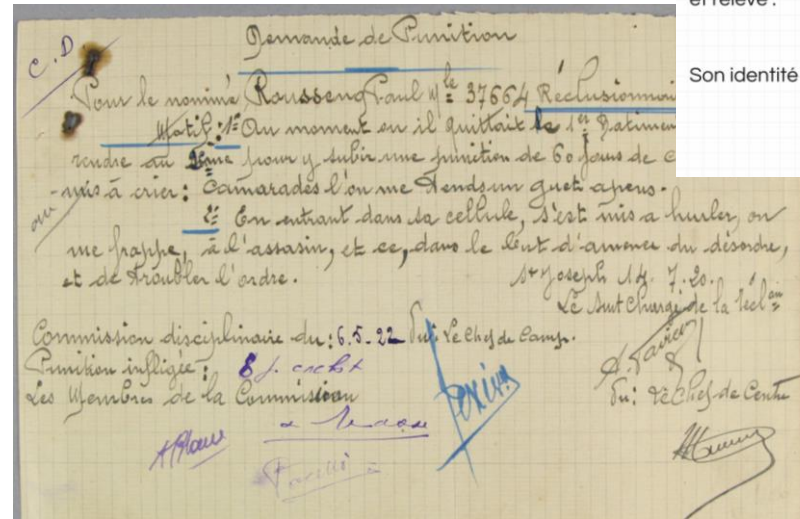 et relève :
Son identité
C.D
Demande de Punition
Pour le nominé Roussenq Paul Mle 37664 Réclusionnair
Motif : 1º Au moment ou il quittait le 1er Batimen
rendre au 2ème pour y subir une punition de 60 jours de c
mis à crier : Camarades l'on me tends un guet apens.
2º En entrant dans sa cellule, s'est mis a hurler, on
me frappe, à l'assasin, et ce, dans le but d'amener du désordre,
et de troubler l'ordre.
St Joseph 14.7.20.
Le Survt Chargé de la Réclon
Commission disciplinaire du : 6.5.22 Vu : Le Chef de Camp.
Punition infligée : 8 j. cachot
Les Membres de la Commission
Vu : Le Chef de Centre